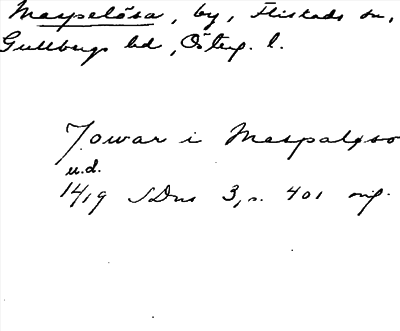 Maspelösa, by, Flistads sn,
Gullbergs hd, Österg. l.
Jowar i Maspaløso
u.d.
14/9 SDns 3, s. 401 orig.